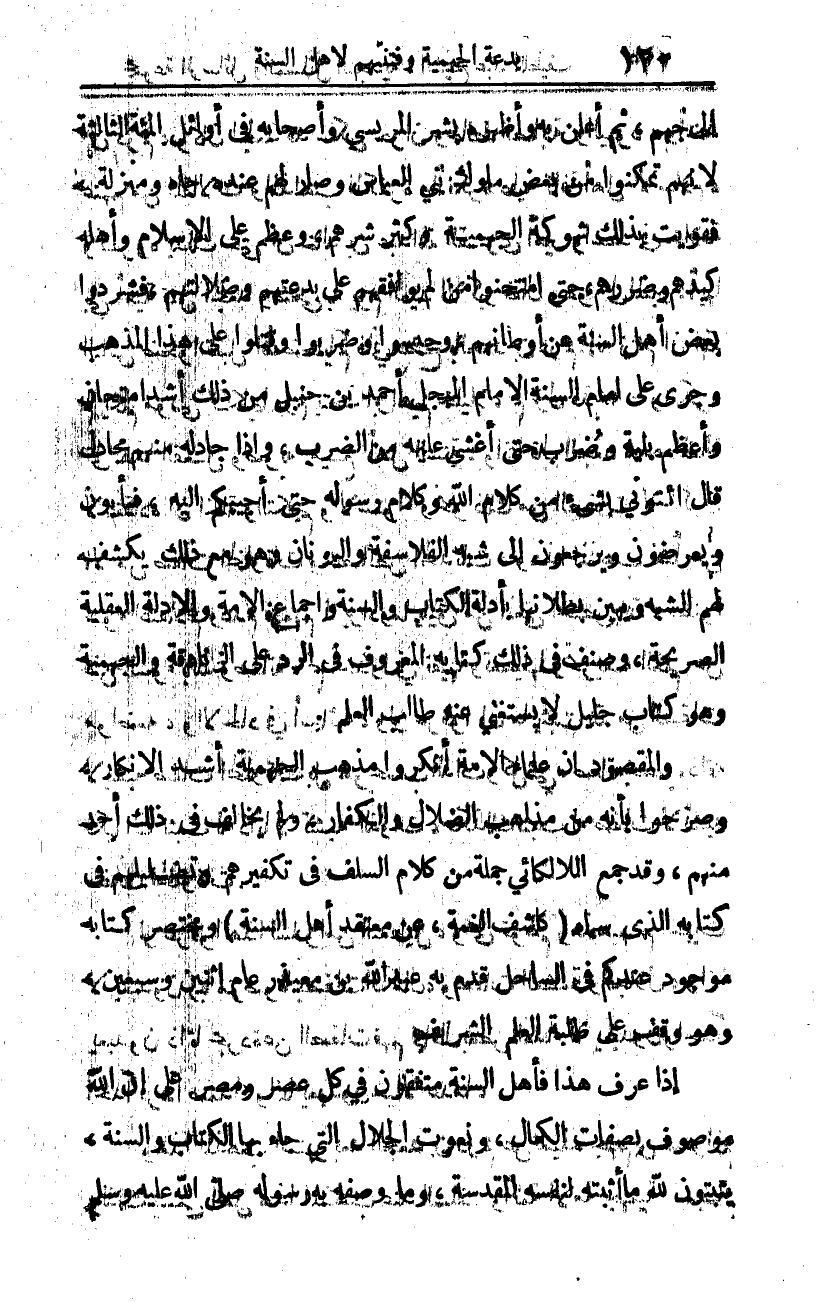 بدعة الجهمية وفتنتهم لاهل السنة
الى جهم ، ثم أعلن به وأظهره بشر المريسي وأصحابه في أوائل المئة الثالثة
لانهم تمكنوا من بعض ملوك بني العباس وصار لهم عندهم جاه ومنزلة
فقويت بذلك شوكة الجهمية وكثر شرهم وعظم على الاسلام وأهله
كيدهم وضررهم حتى امتحنوا من لم يوافقهم على بدعتهم وضلالتهم فشردوا
بعض أهل السنة عن أوطانهم وحبسوا وضربوا وقتلوا على هذا المذهب
وجرى على امام السنة الامام المبجل أحمد بن حنبل من ذلك أشد امتحان
وأعظم بلية وضرب حتى أغشي عليه من الضرب ، واذا جادله منهم مجادل
قال ائتوني بشيء من كلام الله وكلام رسوله حتى أجيبكم اليه ، فيأبون
ويعرضون ويرجعون الى شبه الفلاسفة واليونان وهو مع ذلك يكشف
لهم الشبه ويبين بطلانها بأدلة الكتاب والسنة واجماع الامة والادلة العقلية
الصريحة ، وصنف في ذلك كتابه المعروف في الرد على الزنادقة والجهمية
وهو كتاب جليل لا يستغني عنه طالب العلم
والمقصود ان علماء الامة أنكروا مذهب الجهمية أشد الانكار
وصرحوا بأنه من مذاهب الضلال والكفار ، ولم يخالف في ذلك أحد
منهم ، وقد جمع اللالكائي جملة من كلام السلف في تكفيرهم وتضليلهم في
كتابه الذي سماه ( كاشف الغمة ، عن معتقد أهل السنة ) ومختصر كتابه
موجود عندكم في الساحل قدم به عبد الله بن معيذر عام اثنين وسبعين
وهو وقف على طلبة العلم الشريف
اذا عرف هذا فأهل السنة متفقون في كل عصر ومصر على ان الله
موصوف بصفات الكمال ، ونعوت الجلال التي جاء بها الكتاب والسنة ،
يثبتون لله ما أثبته لنفسه المقدسة ، وما وصفه به رسوله صلى الله عليه وسلم